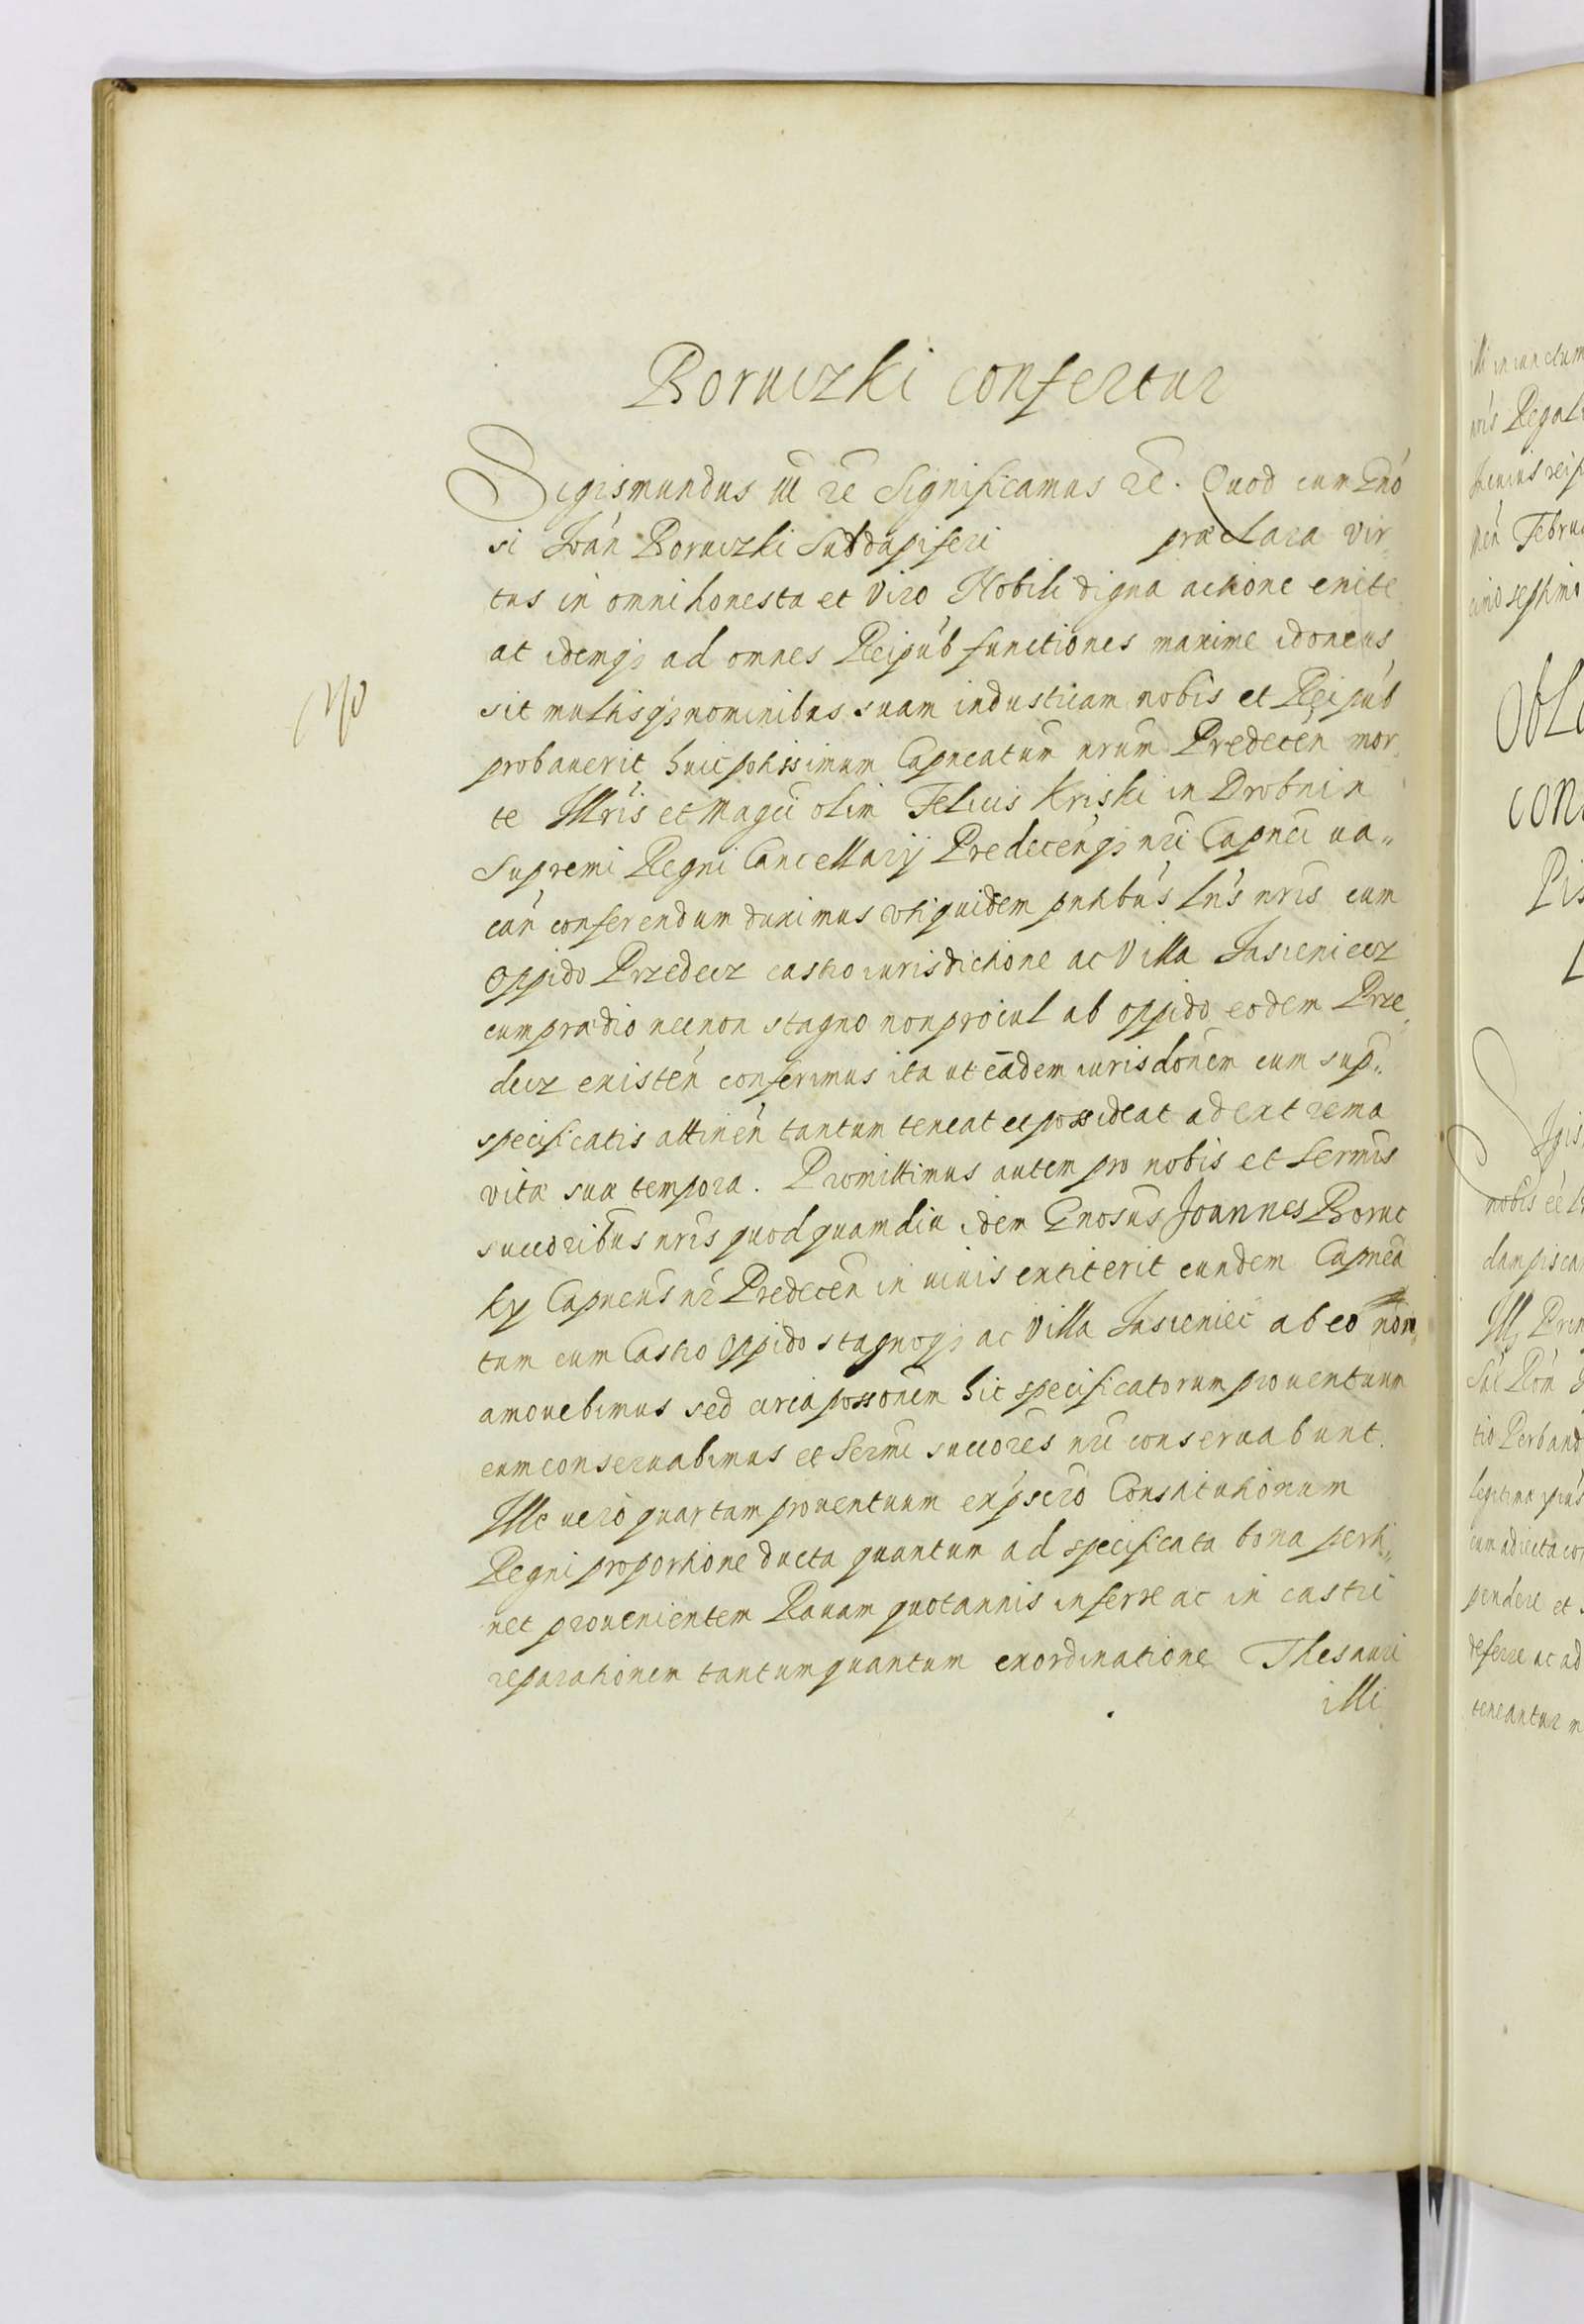 Boruczki confertur
Sigismundus III etc Significamus etc. Quod cum Gno
si Ioan Boruczki Subdapiferi præclara vir
tus in omni honesta et Viro Nobili digna actione enite
at idemq; ad omnes Reipub functiones maxime idoneus
sit multisq; nominibus suam industriam nobis et Reipub
probauerit, huic potissimum Capneatum nrum Predecen mor
te Illris et Magci olim Felicis Kriski in Drobnin
Supremi Regni Cancellarij Predecenq; nri Capnei ua„
can conferendum duximus vti quidem pntibus Lris nris cum
Oppido Przedecz castro iurisdictione ac Villa Jasieniecz
cum prædio necnon stagno non procul ab oppido eodem Prze
decz existen conferimus ita ut eadem iurisdonem cum sup„
specificatis attinen tantum teneat et possideat ad extrema
vitæ suæ tempora. Promittimus autem pro nobis et Sermis
succoribus nris quod quamdiu idem Gnosus Joannes Boruc
ky Capneus nr Predecen in uiuis extiterit eundem Capnea
tum cum Castro Oppido stagnoq; ac Villa Jasieniec ab eo non
amouebimus sed circa possonem hic specificatorum prouentuum
eum conseruabimus et Sermi succores nri conseruabunt.
Ille uero quartam prouentuum ex pscro Constitutionum
Regni proportione ducta quantum ad specificata bona perti„
net prouenientem Rauam quotannis inferre ac in castri
reparationem tantum quantum ex ordinatione Thesauri
illi
illi iniunctum
nris Regali
Februa
septimo
Obla
con
Pis
nobis
dam pisca
Ill Prin
legitima
cum adiecta
pendere et
deferre ac ad
teneantur